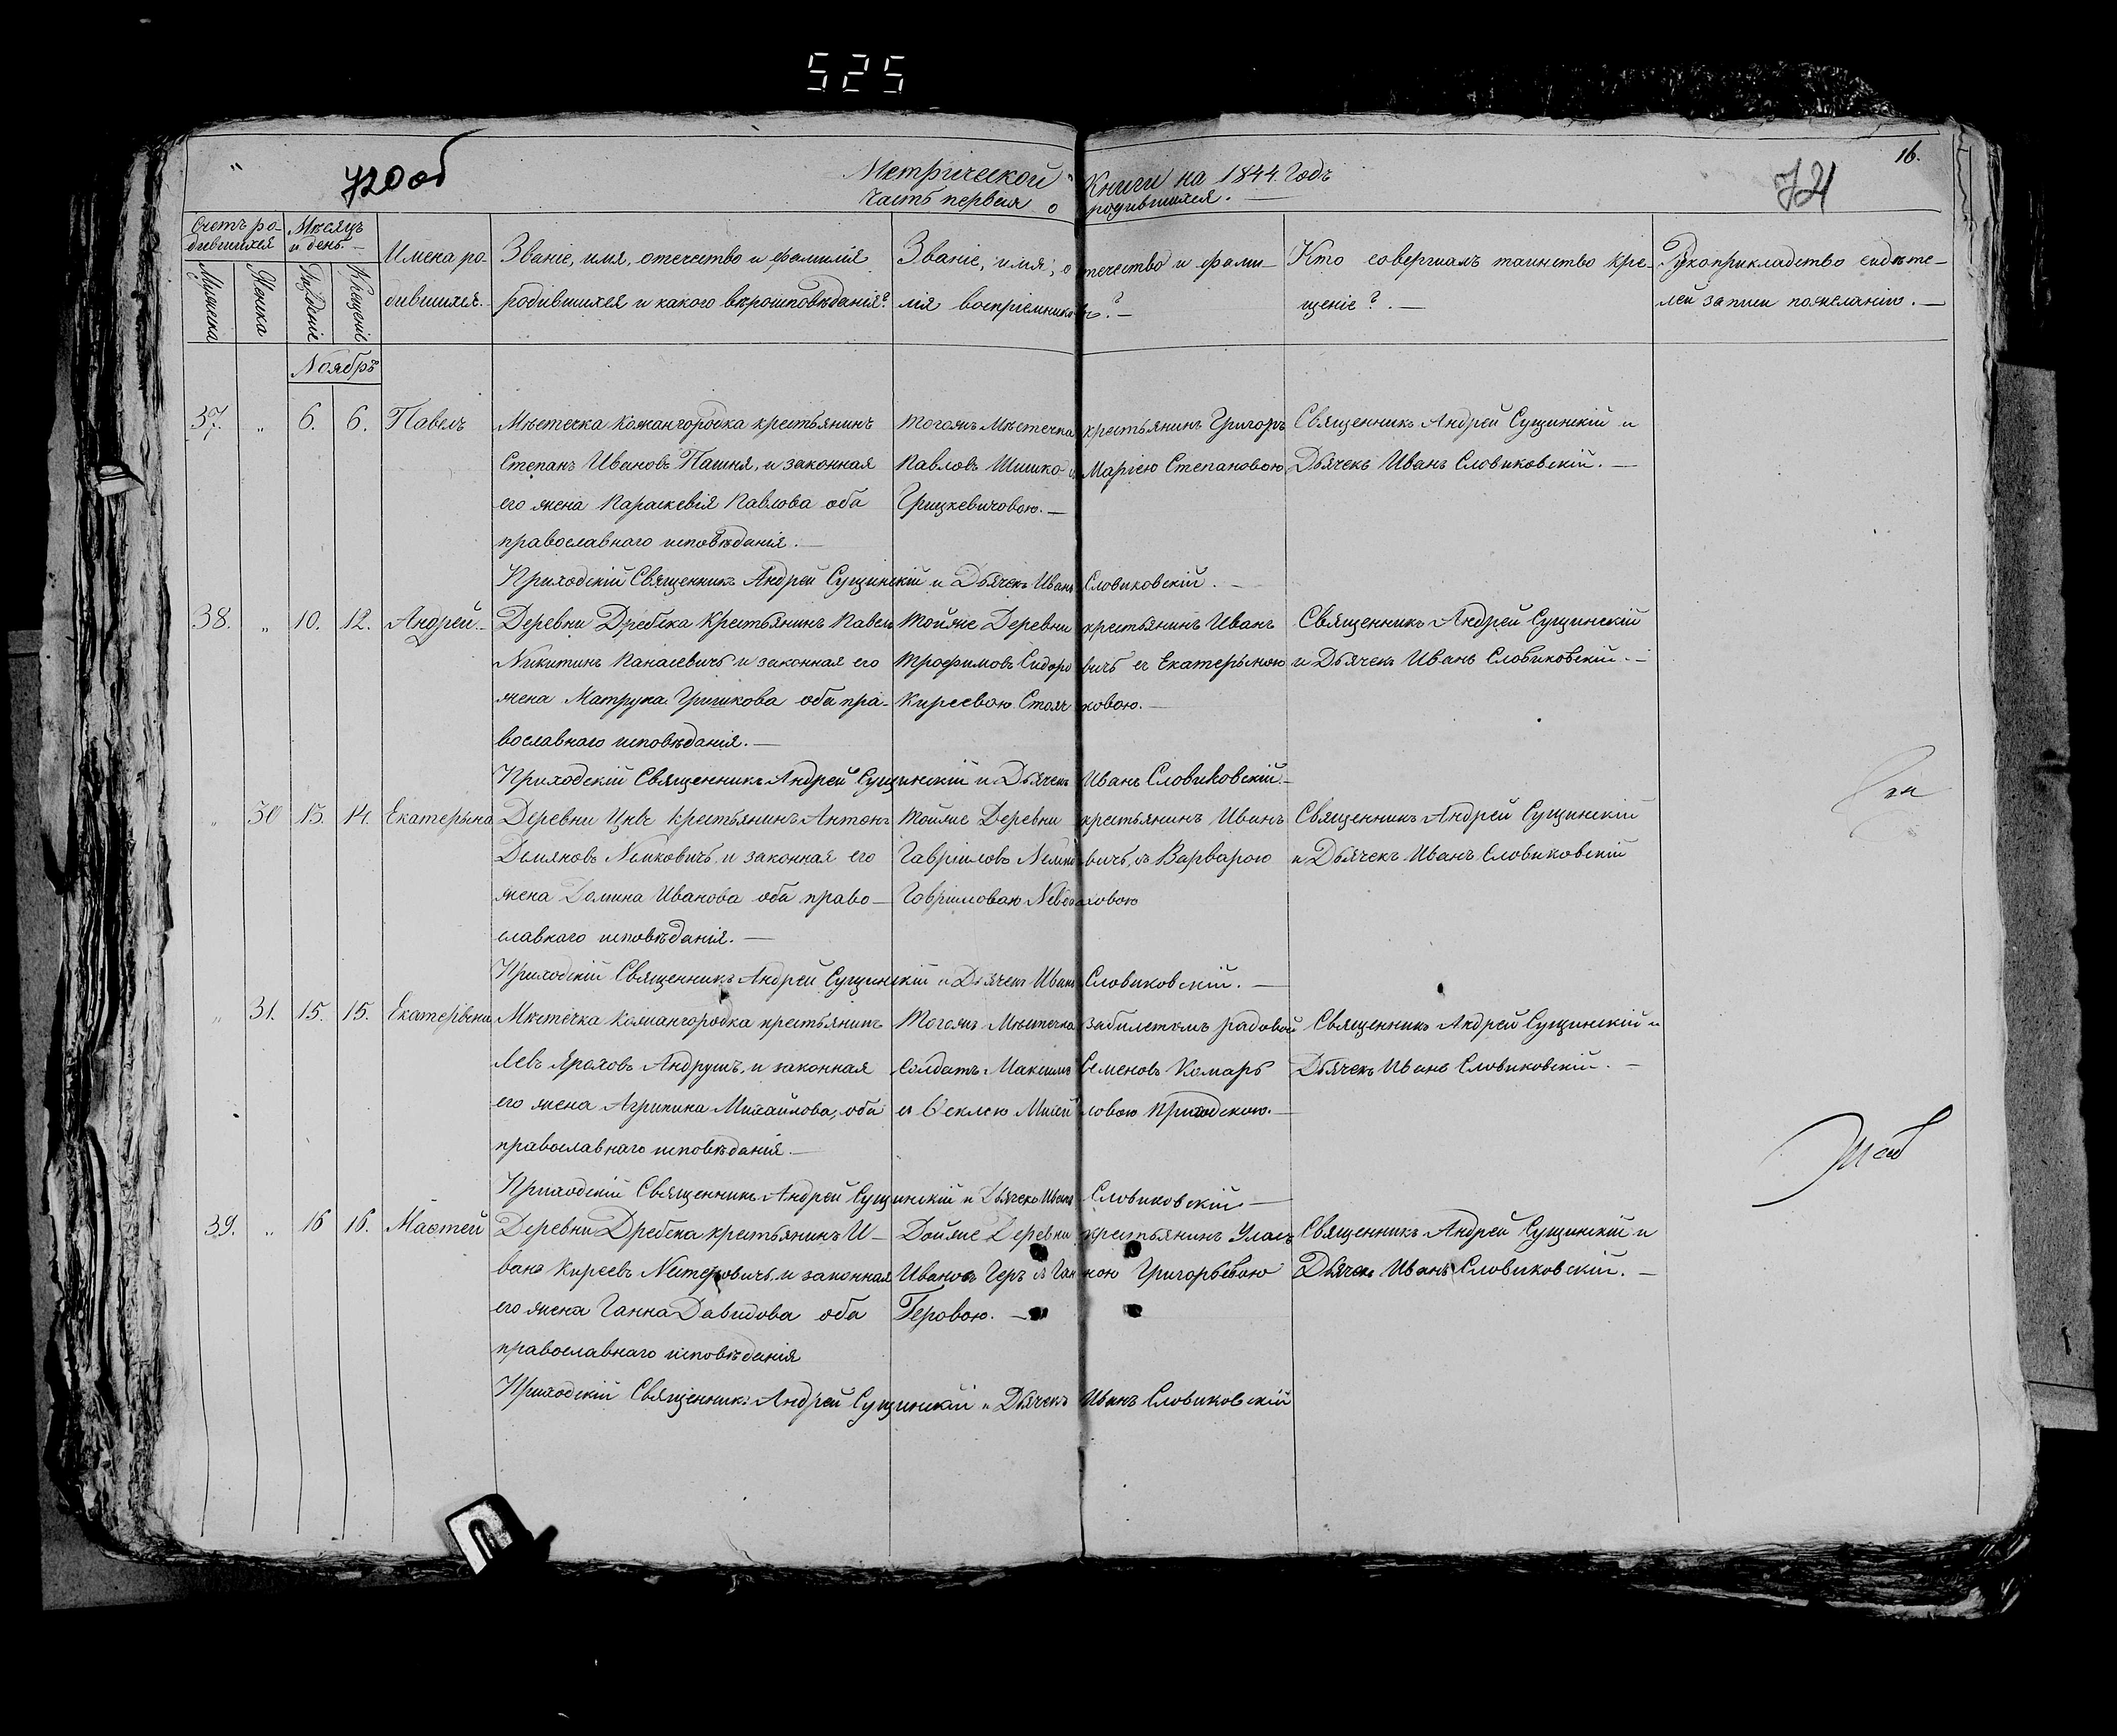 525
720об
Метрической Книги на 1844. Годъ
Часть первая о родившихся.
16.
721
Счетъ ро-
дившихся
Мѣсяцъ
и день.
Мужска
Женска
Рожденіе
Крещеніе
Имена ро
дившихся.
Званіе, имя, отечество и фамилія
родившихся и какого вѣроисповѣданія?
Званіе, имя, отечество и фами-
лія воспріемниковъ?
Кто совершалъ таинство кре-
щеніе?
Рукоприкладство свидѣте-
лей записи по желанію.
Ноябрь
37. " 6. 6. Павелъ Мѣстечка Кожангородка крестьянинъ тогожъ Мѣстечка крестьянинъ Григоръ Священникъ Андрей Сущинскій и
Степанъ Ивановъ Пашня, и законная Павловъ Шишко съ Маріею Степановою Дьячекъ Иванъ Словиковскій.
его жена Параскевія Павлова оба Грицкевичовою.
православнаго исповѣданія.
Приходскій Священникъ Андрей Сущинскій и Дьячекъ Иванъ Словиковскій.
38. " 10. 12. Андрей. Деревни Дребска Крестьянинъ Павелъ тойже Деревни крестьянинъ Иванъ Священникъ Андрей Сущинскій
Никитинъ Панасевичъ и законная его Трофимовъ Сидоровичъ съ Екатерыною и Дьячекъ Иванъ Словиковскій.
жена Матруна Гришкова оба пра- Киреевою Столяковою.
вославнаго исповѣданія.
Приходскій Священникъ Андрей Сущинскій и Дьячекъ Иванъ Словиковскій.
" 30 13. 14. Екатерына Деревни Цнѣ крестьянинъ Антонъ тойже Деревни крестьянинъ Иванъ Священникъ Андрей Сущинскій
Демяновъ и законная его Гавріиловъ съ Варварою и Дьячекъ Иванъ Словиковскій
жена Домина Иванова оба право- Гавріиловою
славнаго исповѣданія.
Приходскій Священникъ Андрей Сущинскій и Дьячекъ Иванъ Словиковскій.
" 31. 15. 15. Екатерына Мѣстечка Кожангородка крестьянинъ тогожъ Мѣстечка забилетомъ радовой Священникъ Андрей Сущинскій и
Левъ Андрушъ, и законная Солдатъ Максимъ Семеновъ Комаръ Дьячекъ Иванъ Словиковскій.
его жена Агрипина Михайлова, оба съ Ѳеклею
православнаго исповѣданія.
Приходскій Священникъ Андрей Сущинскій и Дьячекъ Иванъ Словиковскій.
39. " 16 16. Маѳтей Деревни Дребска крестьянинъ И- Тойже Деревни крестьянинъ Уласъ Священникъ Андрей Сущинскій и
ванъ Киреевъ Нестеровичъ, и законная Ивановъ Геръ съ Ганною Григорьевою Дьячекъ Иванъ Словиковскій.
его жена Ганна Давидова оба Геровою.
православнаго исповѣданія
Приходскій Священникъ Андрей Сущинскій и Дьячекъ Иванъ Словиковскій